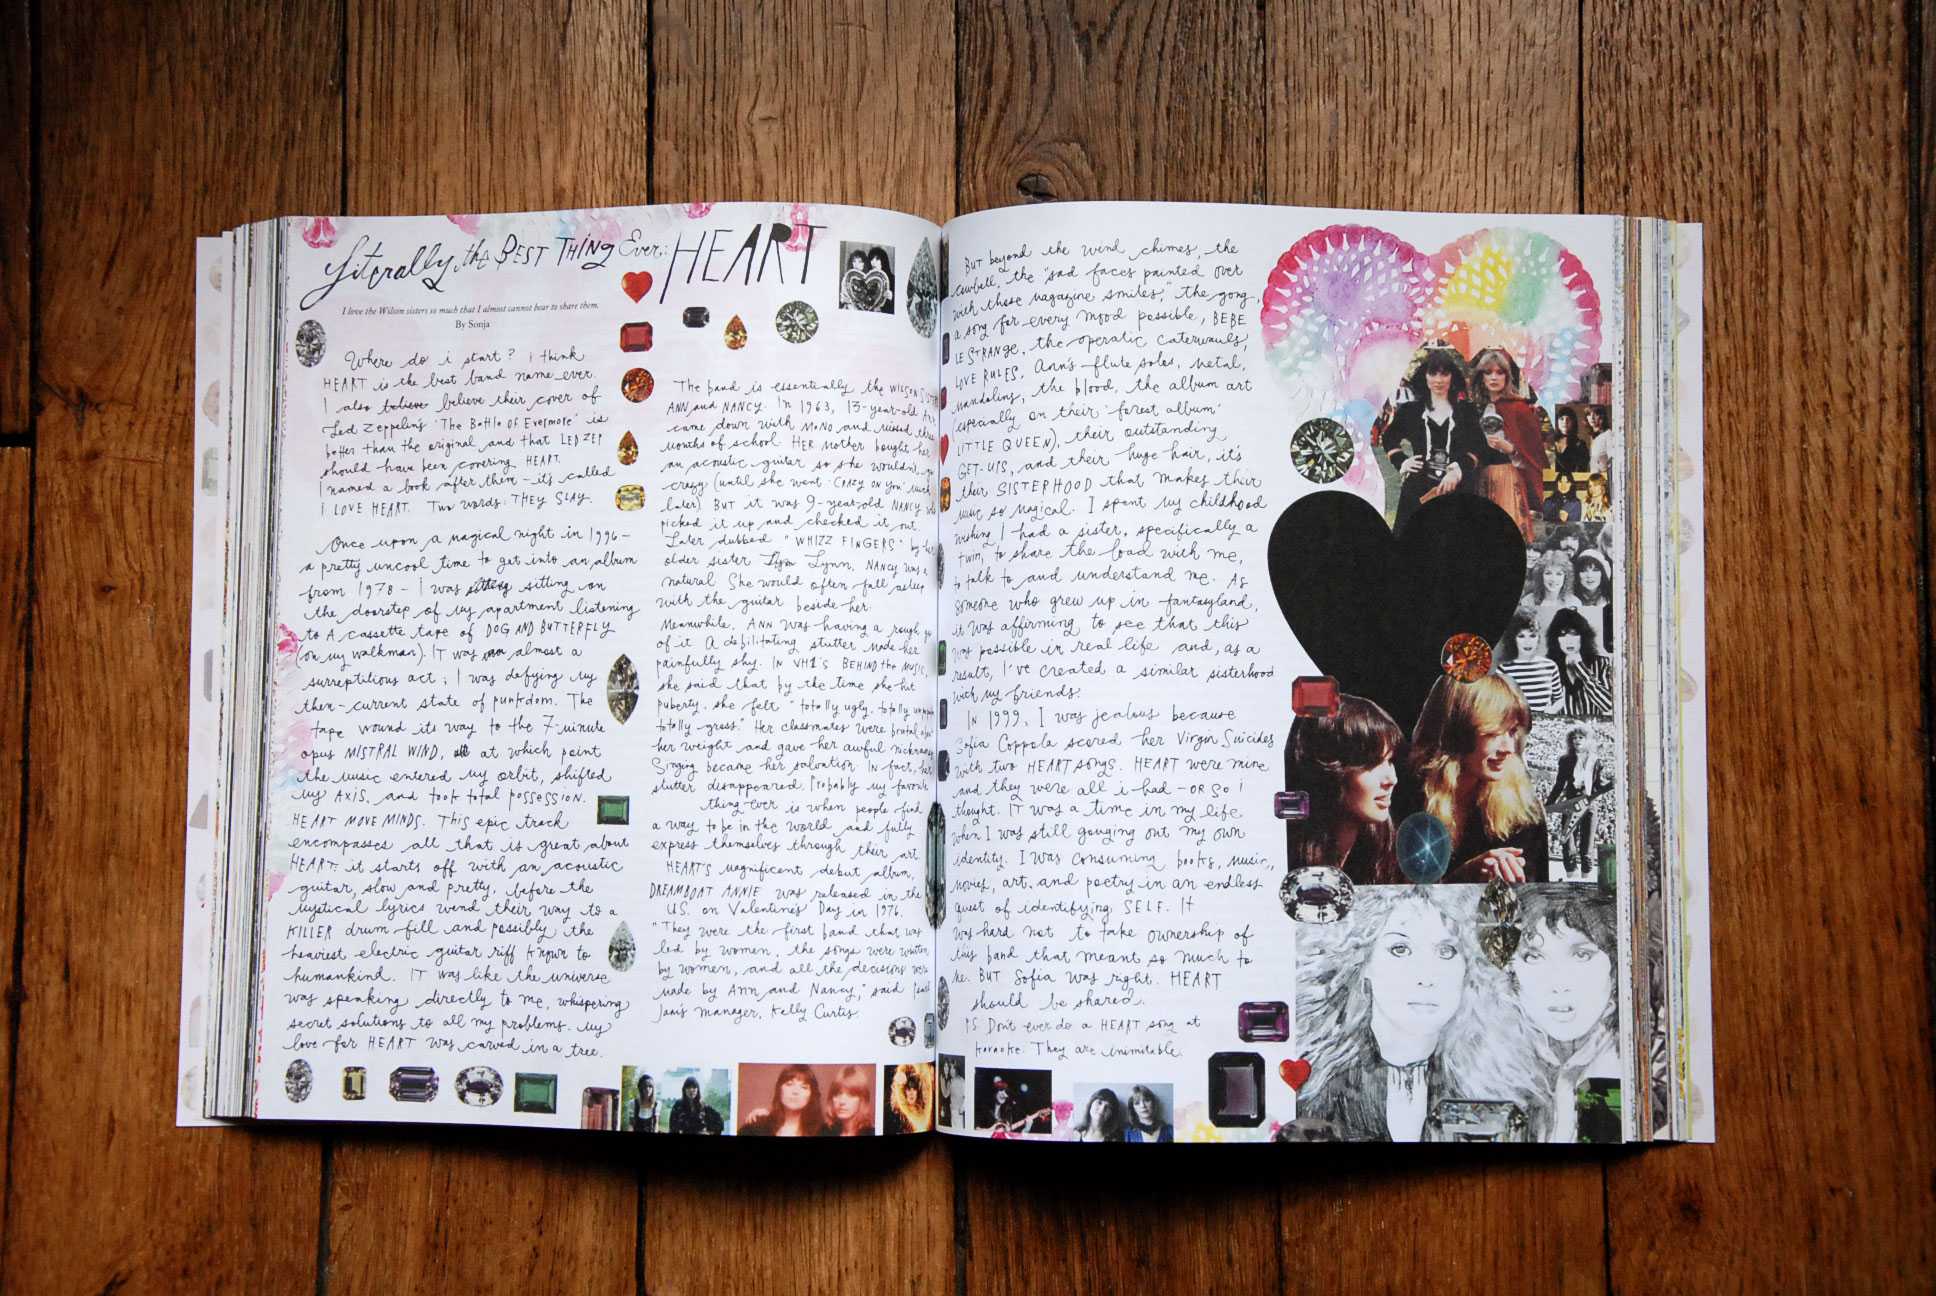 Literally the BEST THING Ever: HEART
I love the Wilson sisters so much that I almost cannot bear to share them.
By Sonja
Where do i start? I think
HEART is the best band name ever.
I also believe believe their cover of
Led Zeppelin's "The Battle of Evermore" is
better than the original and that LED ZEP
should have been covering HEART.
I named a book after them - it's called
I LOVE HEART. Two words: THEY SLAY.
Once upon a magical night in 1996—
a pretty uncool time to get into an album
from 1978 - I was sitting on
the doorstep of my apartment listening
to A cassette tape of DOG AND BUTTERFLY
(on my walkman). IT was almost a
surreptitious act; I was defying my
then-current state of punkdom. The
tape wound its way to the 7-minute
opus MISTRAL WIND, at which point
the music entered my orbit, shifted
my AXIS, and took total possession.
HEART MOVE MINDS. This epic track
encompasses all that is great about
HEART: it starts off with an acoustic
guitar, slow and pretty, before the
mystical lyrics wend their way to a
KILLER drum fill and possibly the
heaviest electric guitar riff known to
humankind. IT was like the universe
was speaking directly to me, whispering
secret solutions to all my problems. My
love for HEART was carved in a tree.
The band is essentially the WILSON
ANN and NANCY. In 1963, 13-year-old Ann
came down with MONO and missed three
months of school. HER mother bought her
an acoustic guitar so she wouldn't go
crazy (until she went "CRAZY ON YOU" much
later). BUT it was 9-year-old NANCY who
picked it up and checked it out.
Later dubbed "WHIZZ FINGERS" by her
older sister Lynn, NANCY was a
natural. She would often fall asleep
with the guitar beside her.
Meanwhile, ANN was having a rough go
of it. A debilitating stutter made her
painfully shy. IN VH1's BEHIND the MUSIC,
she said that by the time she hit
puberty, she felt "totally ugly, totally
totally gross." Her classmates were brutal about
her weight and gave her awful nicknames.
Singing became her salvation. IN fact, her
stutter disappeared. Probably my favourite
thing ever is when people find
a way to be in the world and fully
express themselves through their art.
HEART'S magnificent debut album,
DREAMBOAT ANNIE was released in the
U.S. on Valentine's Day in 1976.
"They were the first band that was
led by women, the songs were written
by women, and all the decisions were
made by Ann and Nancy," said
manager, Kelly Curtis.
BUT beyond the wind chimes, the
cowbell, the "sad faces painted over
with those magazine smiles," the gong,
a song for every mood possible, BEBE
LE STRANGE, the operatic caterwauls,
LOVE RULES, Ann's flute solos, metal,
mandolins, the blood, the album art
(especially on their 'forest album'
LITTLE QUEEN), their outstanding
GET-UPS, and their huge hair, it's
their SISTERHOOD that makes their
music so magical. I spent my childhood
wishing I had a sister, specifically a
twin, to share the load with me,
to talk to and understand me. As
someone who grew up in fantasyland,
it was affirming to see that this
was possible in real life and, as a
result, I've created a similar sisterhood
with my friends.
IN 1999, I was jealous because
Sofia Coppola scored her Virgin Suicides
with two HEART songs. HEART were mine
and they were all i had - OR SO I
thought. IT was a time in my life
when I was still gouging out my own
identity. I was consuming books, music,
movies, art, and poetry in an endless
quest of identifying SELF. It
was hard not to take ownership of
this band that meant so much to
me. BUT Sofia was right. HEART
should be shared.
PS Don't ever do a HEART song at
karaoke. They are inimitable.